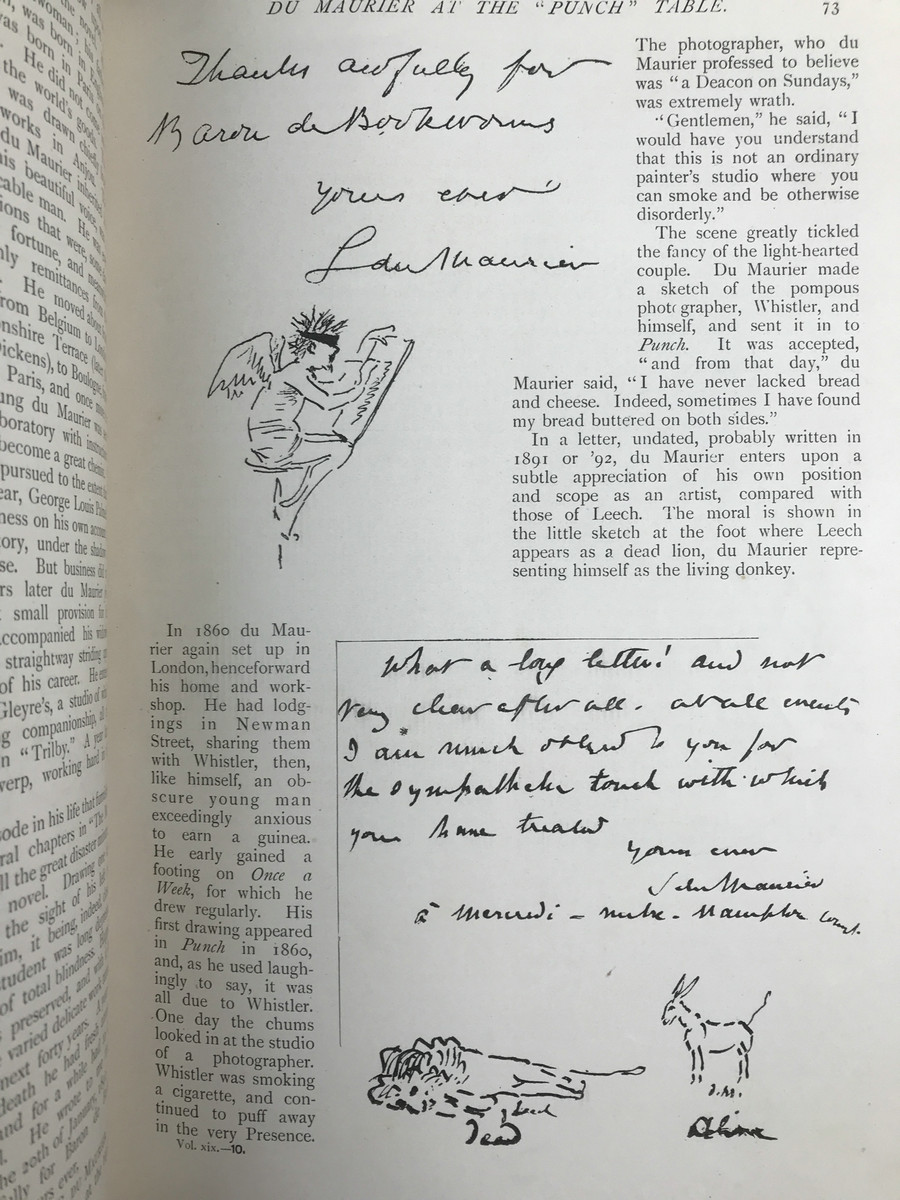 woman; his
was born in
was born in Paris
He did not
the world's good
was drawn chiefly
works in Anjou
du Maurier inherited
his beautiful voice,
able man. He was
ions that were, some
fortune, and
nly remittances from
He moved about
from Belgium to
onshire Terrace (later
Dickens), to Boulogne,
Paris, and once more
ung du Maurier was
boratory with
become a great chemist
pursued to the extent
ear, George Louis
ness on his own account
tory, under the shadow
se. But business did
rs later du Maurier
small provision for
accompanied his
straightway striding
of his career. He
Gleyre's, a studio of
g companionship,
n "Trilby." A year
werp, working hard in
ode in his life that
ral chapters in "The
ll the great disaster
novel. Drawing
the sight of his left
im, it being, indeed,
student was long
of total blindness. But
preserved, and with
varied delicate work
next forty years. A
death he had fresh
and for a while had
He wrote to
he 20th of January,
ally for Baron de
rs ever,
DU MAURIER AT THE "PUNCH" TABLE. 73
Thanks awfully for
Baron de Bookworms
yours ever
G du Maurier
The photographer, who du
Maurier professed to believe
was "a Deacon on Sundays,"
was extremely wrath.
"Gentlemen," he said, "I
would have you understand
that this is not an ordinary
painter's studio where you
can smoke and be otherwise
disorderly."
The scene greatly tickled
the fancy of the light-hearted
couple. Du Maurier made
a sketch of the pompous
photographer, Whistler, and
himself, and sent it in to
Punch. It was accepted,
"and from that day," du
Maurier said, "I have never lacked bread
and cheese. Indeed, sometimes I have found
my bread buttered on both sides."
In a letter, undated, probably written in
1891 or '92, du Maurier enters upon a
subtle appreciation of his own position
and scope as an artist, compared with
those of Leech. The moral is shown in
the little sketch at the foot where Leech
appears as a dead lion, du Maurier repre-
senting himself as the living donkey.
In 1860 du Mau-
rier again set up in
London, henceforward
his home and work-
shop. He had lodg-
ings in Newman
Street, sharing them
with Whistler, then,
like himself, an ob-
scure young man
exceedingly anxious
to earn a guinea.
He early gained a
footing on Once a
Week, for which he
drew regularly. His
first drawing appeared
in Punch in 1860,
and, as he used laugh-
ingly to say, it was
all due to Whistler.
One day the chums
looked in at the studio
of a photographer.
Whistler was smoking
a cigarette, and con-
tinued to puff away
in the very Presence.
Vol. xix.—10.
What a long letter! and not
very clear after all. at all events
I am much obliged to you for
the sympathetic touch with which
you have treated
yours ever
G du Maurier
à Mercredi – Hampton Court.
Leech
Dead
D.M.
Alive